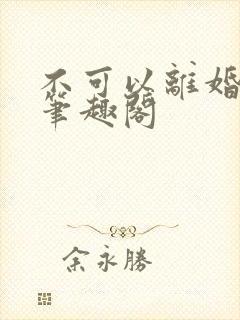 不可以離婚
筆趣閣
余永勝